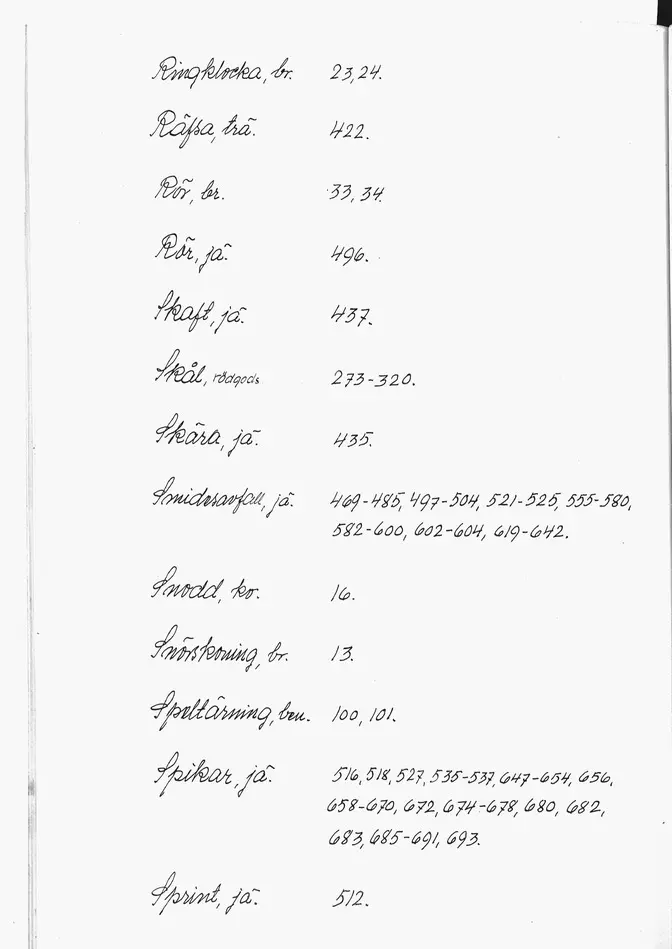 Ringklocka, br. 23,24.
Räfsa, trä. 422.
Rör, br. 33, 34.
Rör, jä. 496.
Skaft, jä. 437.
Skål, rödgods 273-320.
Skära, jä. 435.
Smidesavfall, jä. 469-485, 497-504, 521-525, 555-580,
582-600, 602-604, 619-642.
Snodd, ko. 16.
Snörskoning, br. 13.
Speltärning, ben. 100, 101.
Spikar, jä. 516, 518, 527, 535-537, 647-654, 656,
658-670, 672, 674-678, 680, 682,
683, 685-691, 693.
Sprint, jä. 512.